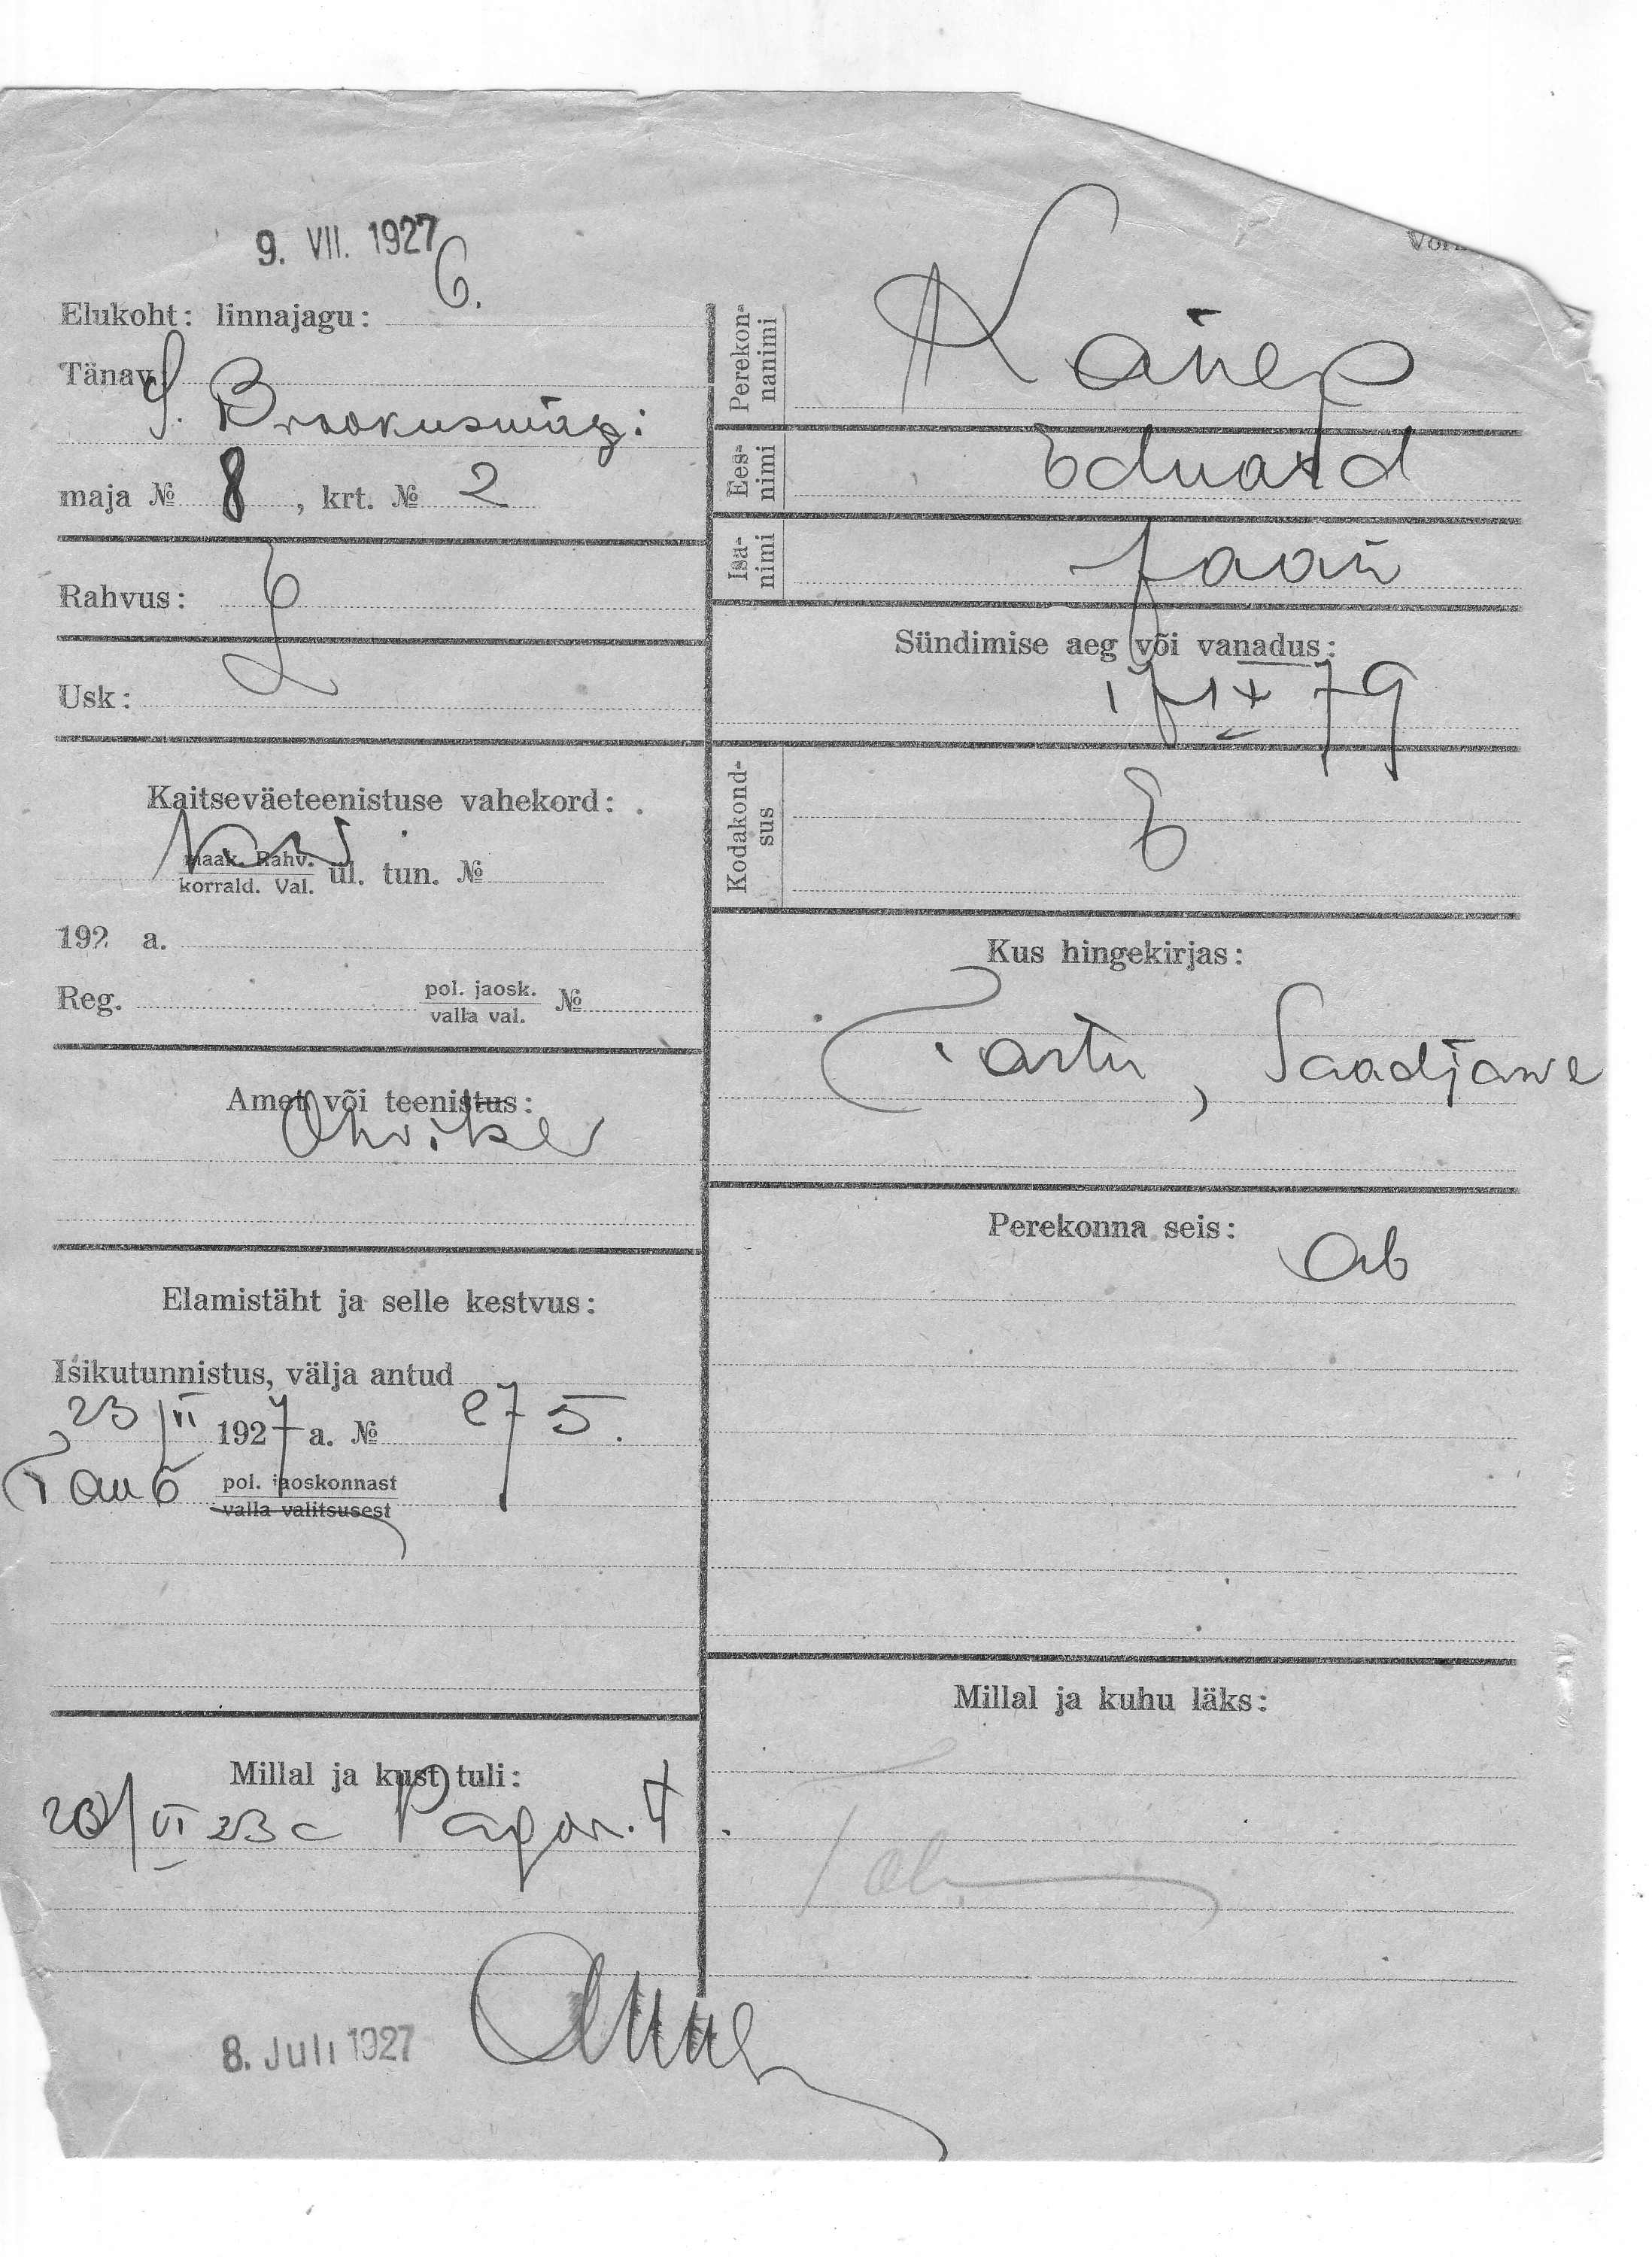 9. VII. 1927
Elukoht: linnajagu: 6.
Tänav: S. Brookusmägi
maja № 8, krt. № 2
Rahvus: E
Usk: L
Kaitseväeteenistuse vahekord:
maak. Rahv.
korrald. Val. ül. tun. №
192 a.
Reg. pol. jaosk. №
valla val.
Amet või teenistus:
Elamistäht ja selle kestvus:
Isikutunnistus, välja antud
23/VI 1927 a. № 275.
Tal 6 pol. jaoskonnast
valla valitsusest
Millal ja kust tuli:
8. Juli 1927
Perekonnanimi
Känep
Eesnimi
Eduard
Isanimi
Jaan
Sündimise aeg või vanadus:
17 IX 79
Kodakondsus
E
Kus hingekirjas:
Tartu, Saadjarve
Perekonna seis: ab
Millal ja kuhu läks: